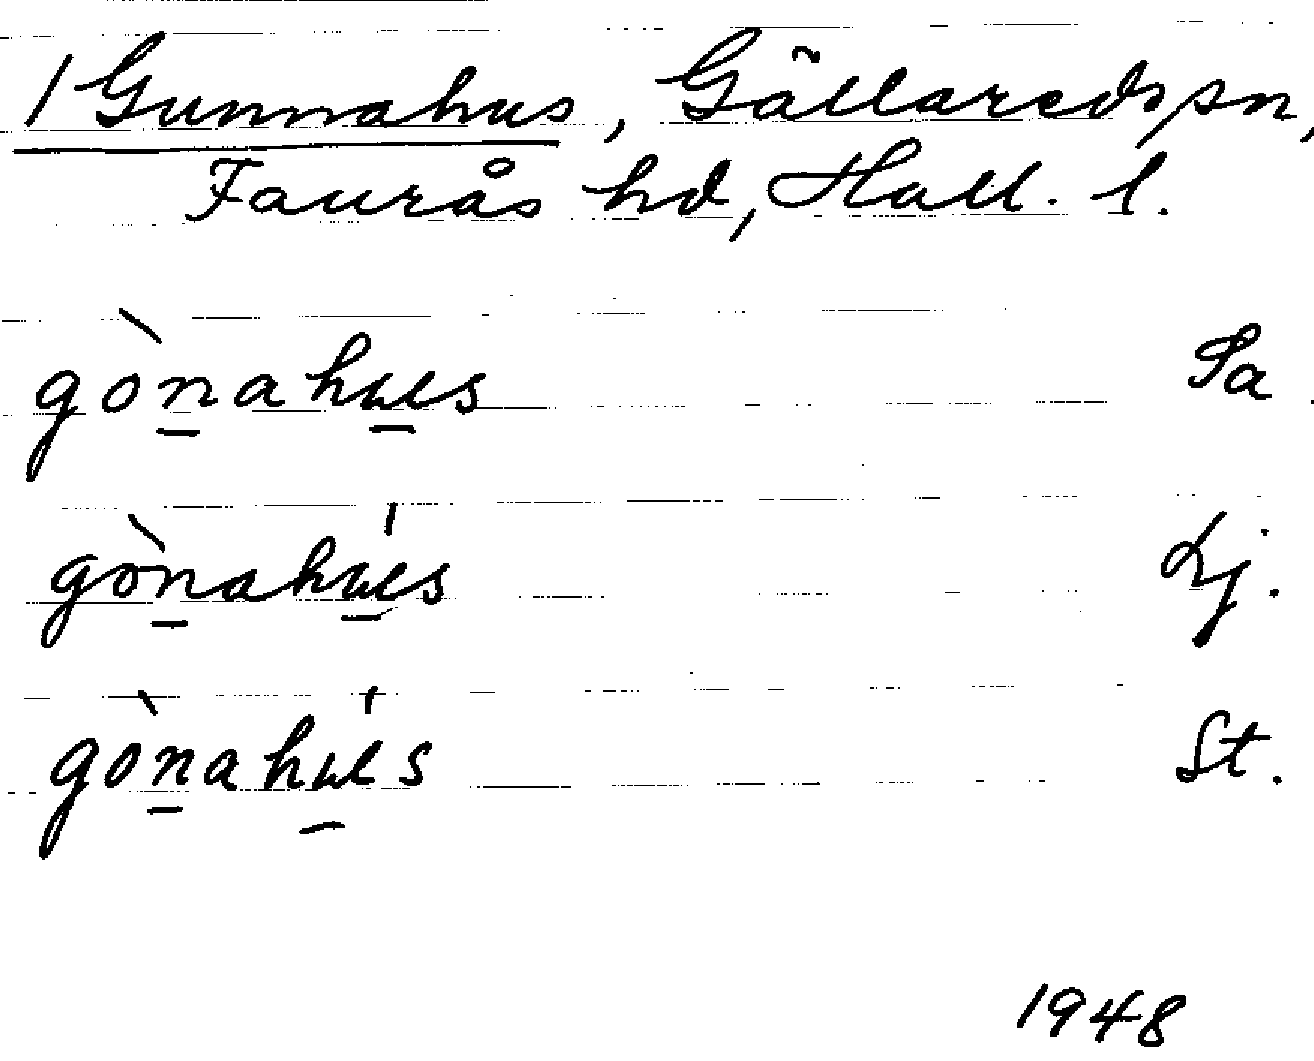 / Gunnahus, Gällareds sn,
Faurås hd, Hall. l.
gò̱nahu̱s Sa
gò̱nahú̱s Lj.
gò̱nahú̱s St.
1948